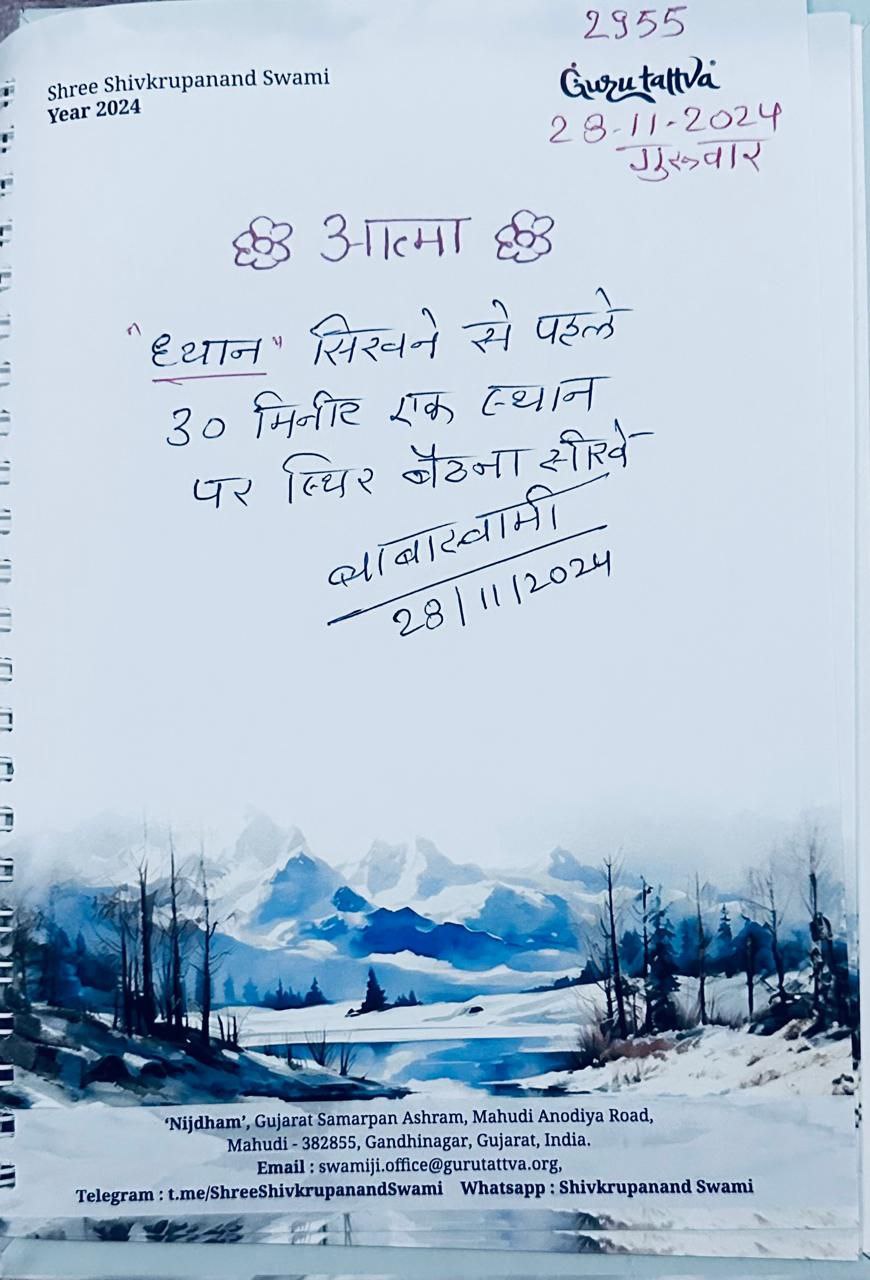 2955
Shree Shivkrupanand Swami
Year 2024
Gurutattva
28-11-2024
गुरुवार
आत्मा
"ध्यान" सिखने से पहले
30 मिनीट एक स्थान
पर स्थिर बैठना सीखें
बाबास्वामी
28/11/2024
'Nijdham', Gujarat Samarpan Ashram, Mahudi Anodiya Road,
Mahudi - 382855, Gandhinagar, Gujarat, India.
Email : swamiji.office@gurutattva.org,
Telegram : t.me/ShreeShivkrupanandSwami Whatsapp : Shivkrupanand Swami